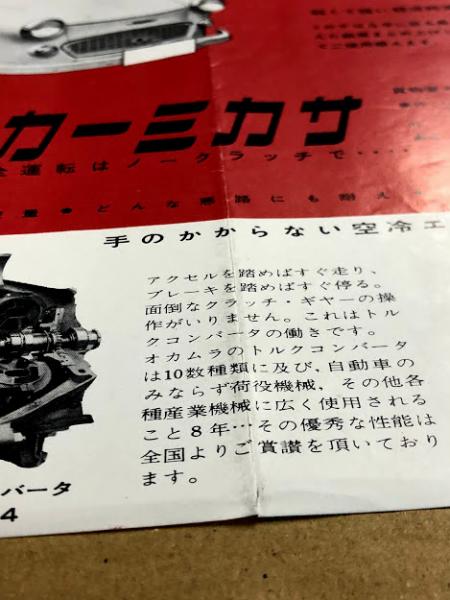 カーミカサ
全運転はノークラッチで‥‥
どんな悪路にも耐え
手のかからない空冷エ
アクセルを踏めばすぐ走り、
ブレーキを踏めばすぐ停る。
面倒なクラッチ・ギヤーの操
作がいりません。これはトル
クコンバータの働きです。
オカムラのトルクコンバータ
は10数種類に及び、自動車の
みならず荷役機械，その他各
種産業機械に広く使用される
こと8年…その優秀な性能は
全国よりご賞讃を頂いており
ます。
バータ
4